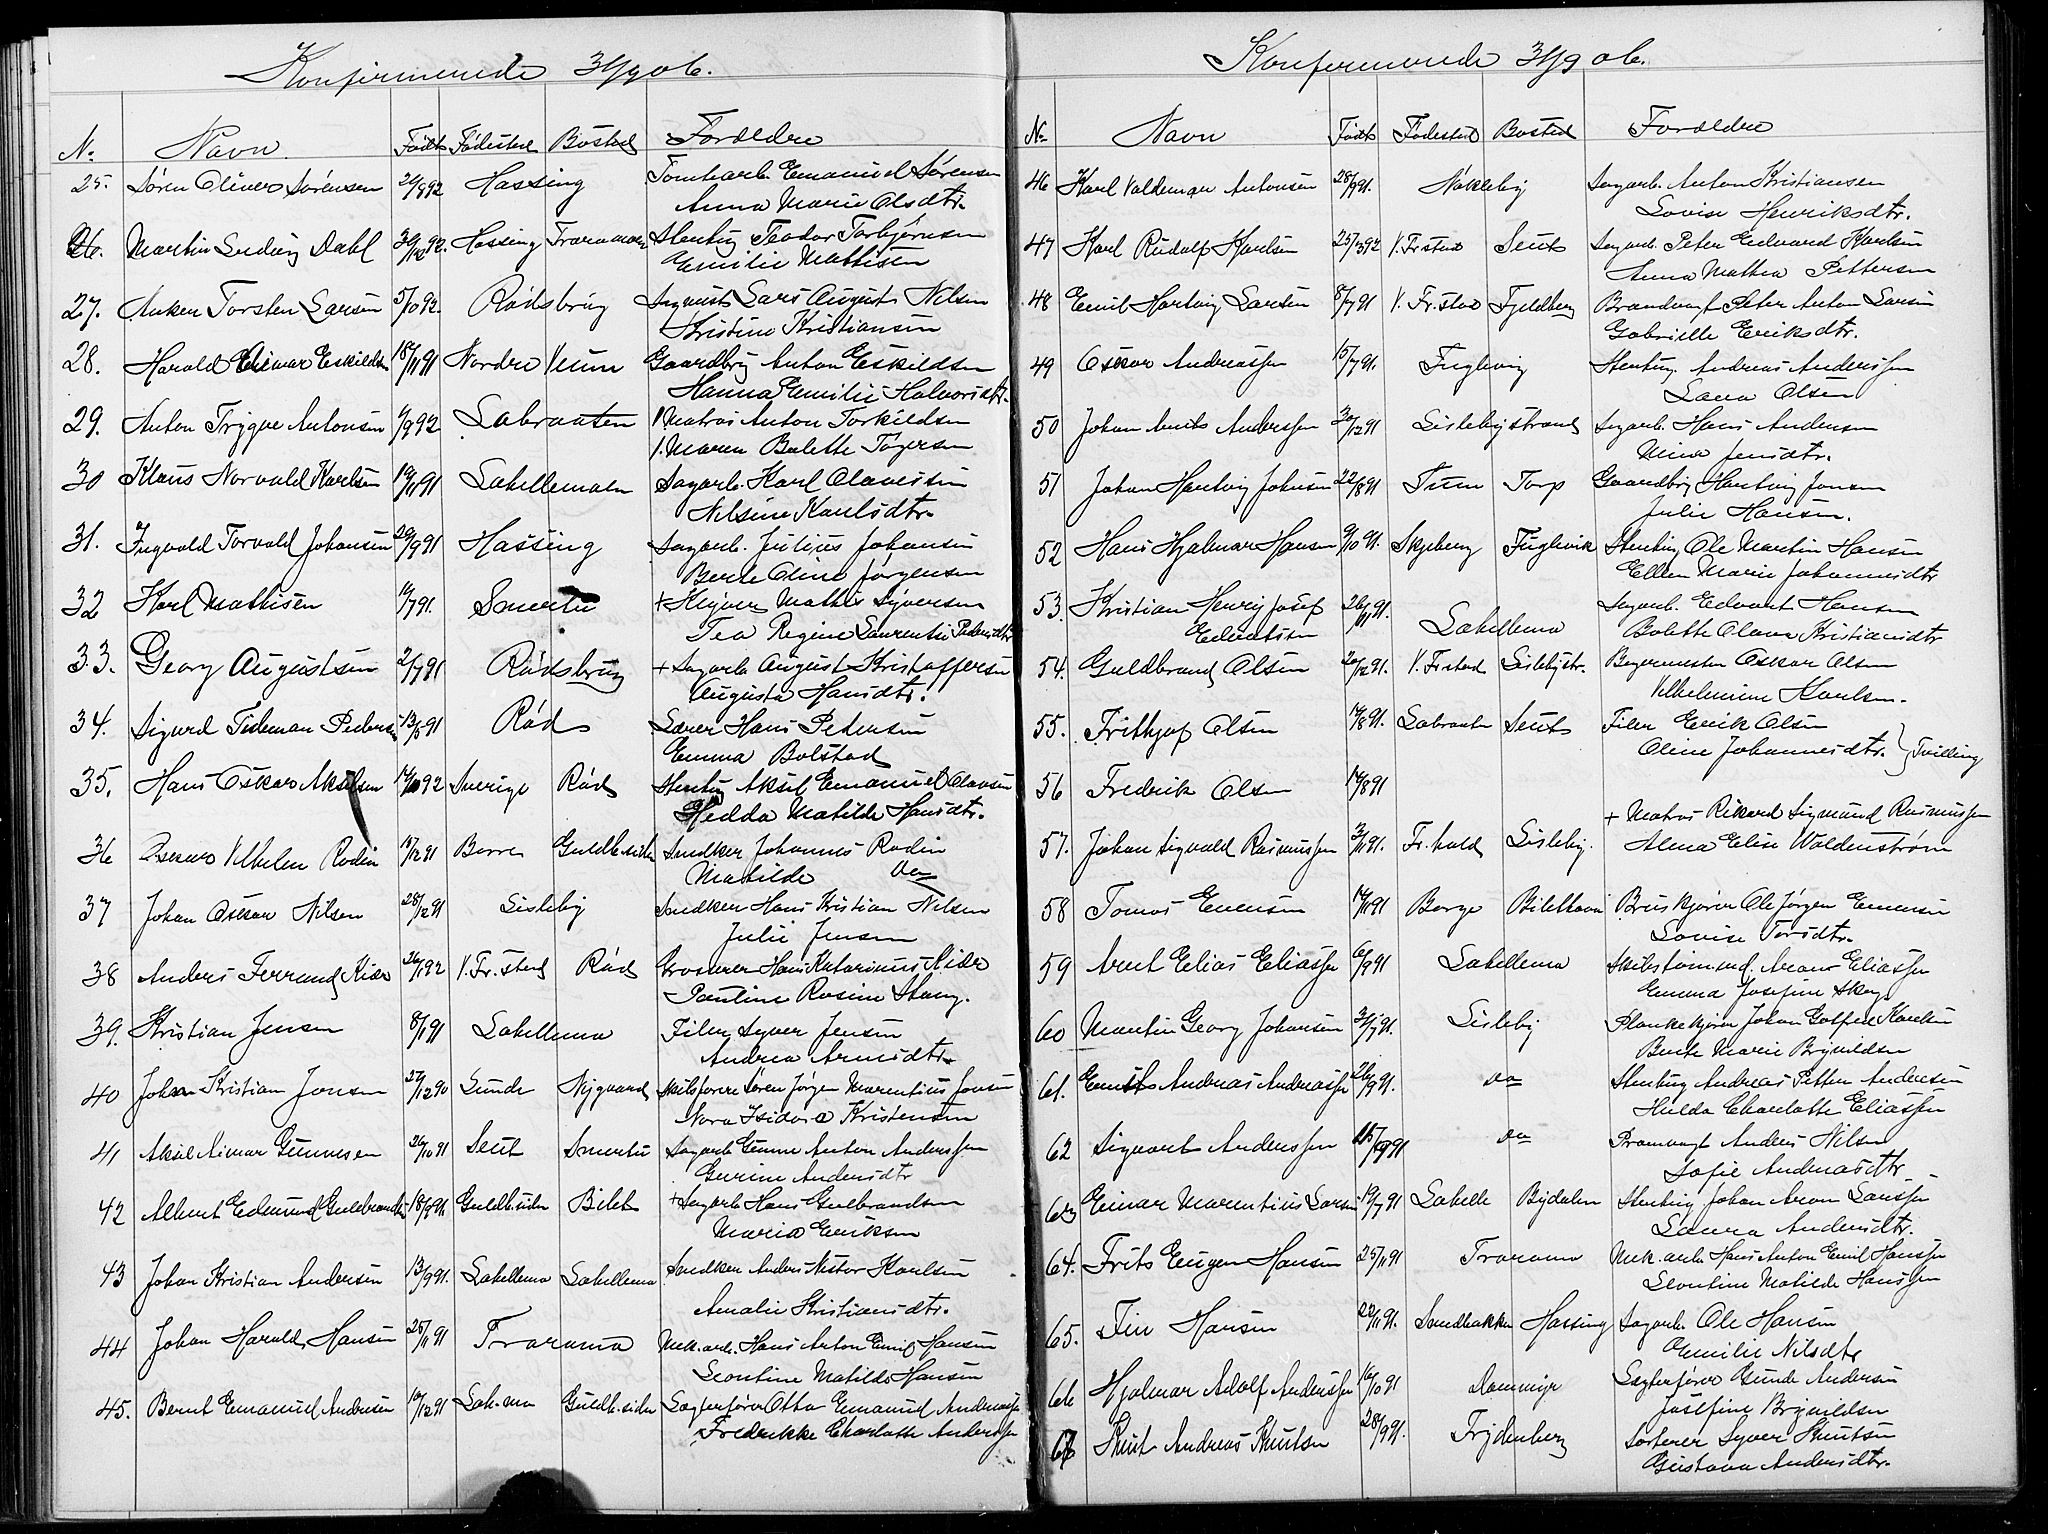 Konfirmerede 30/9 06.
N. Navn Født Fødested Bosted Forældre
25. Søren Oliver Sørensen 21/8 92 Hassing Tomtearb. Emanuel Sørensen
Anna Marie Olsdtr.
26. Martin Ludvig Dahl 30/12 92. Hassing Traramoen Stenhug Teodor Torbjørnsen
Emilie Mattisen
27. Anken Torsten Larsen 5/10 92. Rødsbrug Lars August Nilsen
Kristine Kristiansen
28. Harald Eskildsen 18/11 91 Nordre Veum Gaardbrg Anton Eskildsen
Hanna Emilie Halvorsdtr.
29. Anton Trygve Antonsen 6/9 92 Labraaten Matros Anton Torkildsen
Maren Bolette Tøgersen
30 Klaus Norvald Karlsen 19/11 91 Lahellemoen Sagarb. Karl Olavessen
Nilsine Karlsdtr.
31. Ingvald Torvald Johansen 29/9 91 Hassing Sagarb. Julius Johansen
Berte Oline Jørgensen
32 Karl Mattisen 11/7 91. Smertu + Mathis Syversen
Tea Regine Laurentse Pedersdtr
33. Georg Augustsen 2/7 91 Rødsbrug + Sagarb August Kristoffersen
Augusta Hansdtr.
34. Sigurd Tideman Pedersen 13/5 91 Rød Lærer Hans Pedersen
Emma Bolstad
35. Hans Oskar Akselsen 14/10 92 Sverige Rød Stenhug Aksel Emanuel Olavsen
Hedda Matilde Hansdtr.
36 Oskar Vilhelm Rodin 15/12 91 Borre Guldb.siden Snedker Johannes Rodin
Matilde do
37 Johan Oskar Nilsen 28/12 91 Lisleby Snedker Hans Kristian Nilsen
Julie Jensen
38 Anders Ferrand Kiær 26/1 92 V. Fr.stad Rød Grosserer Hans Katarinus Kiær
Pauline Rosine Stang.
39. Kristian Jensen 8/1 91 Lahellemo Filer Syver Jensen
Andrea Arnesdtr.
40 Johan Kristian Jensen 27/12 90 Sunde Nygaard Skibsfører Søren Jørgen Marentius Jensen
Nora Isidora Kristensen
41 Aksel Aimar Gunnesen 26/10 91 Seut Smertu Sagarb Gunne Anton Anderssen
Gurine Andersdtr
42 Albert Edmund Guldbrandsen 18/9 91. Guldb.siden Bilet + Sagarb Hans Gulbrandsen
Maria Eriksen
43 Johan Kristian Andersen 13/9 91. Lahellemo Lahellemo Snedker Anders Nestor Karlsen
Amalie Kristiansdtr.
44 Johan Harald Hansen 25/11 91 Traramo Mek.arb. Hans Anton Emil Hansen
Leontine Matilde Hansen
45. Bernt Emanuel Andersen 10/12 91 Lah.mo Guldb.siden Lægterfører Otto Emanuel Anderssen
Fredrikke Charlotte Anderssen
Konfirmerede 30/9 06.
No Navn Født Fødested Bosted Forældre
46 Karl Valdemar Antonsen 28/9 91. Nøkleby Sagarb. Anton Kristiansen
Lovise Henriksdtr.
47 Karl Rudolf Karlsen 25/3 92 V. Fr.stad Seut Sagarb. Peter Edvard Karlsen
Anna Mathea Pettersen
48 Emil Hartvig Larsen 8/7 91 V. Fr.stad Fjeldberg Brandvagt Peter Anton Larsen
Gabrielle Eriksdtr.
49 Oskar Andreassen 15/7 91. Fuglevig Stenhug. Andreas Anderssen
Lava Olsen
50 Johan Arnts Anderssen 30/12 91 Lislebystrand Sagarb. Hans Andersen
Mina Jensdtr.
51 Johan Hartvig Johnsen 22/8 91 Tune Torp Gaardbrg Hartvig Jonsen
Julie Hansen.
52 Hans Hjalmar Hansen 9/10 91. Skjeberg Fuglevik Stenhug Ole Martin Hansen
Ellen Marie Johannesdtr
53. Kristian Henrig Josef
Edvartsen 26/11 91. Lahellemo Sagarb. Edvart Hansen
Bolette Olava Kristiansdtr
54. Guldbrand Olsen 20/12 91. V. Fr.stad Lislebystr. Bøyermester Oskar Olsen
Vilhelmine Karlsen.
55. Frithjof Olsen 14/8 91. Labraaten Seut Filer Erik Olsen
Oline Johannesdtr. } Tvilling
56 Fredrik Olsen 14/8 91
57. Johan Sigvald Rasmussen 3/11 91. Fr.hald Lisleby. + Matros Rikard Sigmund Rasmussen
Alma Elise Woldenstrøm
58 Tomas Evensen 14/11 91 Borge Bilethavn Bruskjører Ole Jørgen Evensen
Lovise Torsdtr.
59 Arnt Elias Eliassen 6/9 91 Lahellemo Skibstømmd. Aron Eliassen
Emma Josefine Skog
60 Martin Georg Johansen 31/7 91. Lisleby Plankekjører Johan Gotfred Karlsen
Berte Marie Brynildsen
61. Ernst Andreas Andreassen 26/9 91. do Stenhug Andreas Petter Andersen
Hulda Charlotte Eliassen
62 Sigvart Anderssen 25/9 91 do Pramvagt Anders Nilsen
Sofie Andreasdtr
63 Einar Marentius Larsen 19/7 91 Lahelle Bydalen Stenhug Johan Aron Larssen
Laura Andersdtr.
64. Frits Eugen Hansen 25/11 91 Traramo Mek. arb. Hans Anton Emil Hanssen
Leontine Matilde Hanssen
65. Fin Hansen 22/11 91. Sandbakken Hassing Sagarb. Ole Hansen
Emilie Nilsdtr
66 Hjalmar Adolf Anderssen 16/10 91 Dammyr Lægterfører Gunde Andersen
Josefine Brynildsen
67 Knut Andreas Knutsen 28/9 91. Frydenberg Sorterer Syver Knutsen
Gustava Andersdtr.